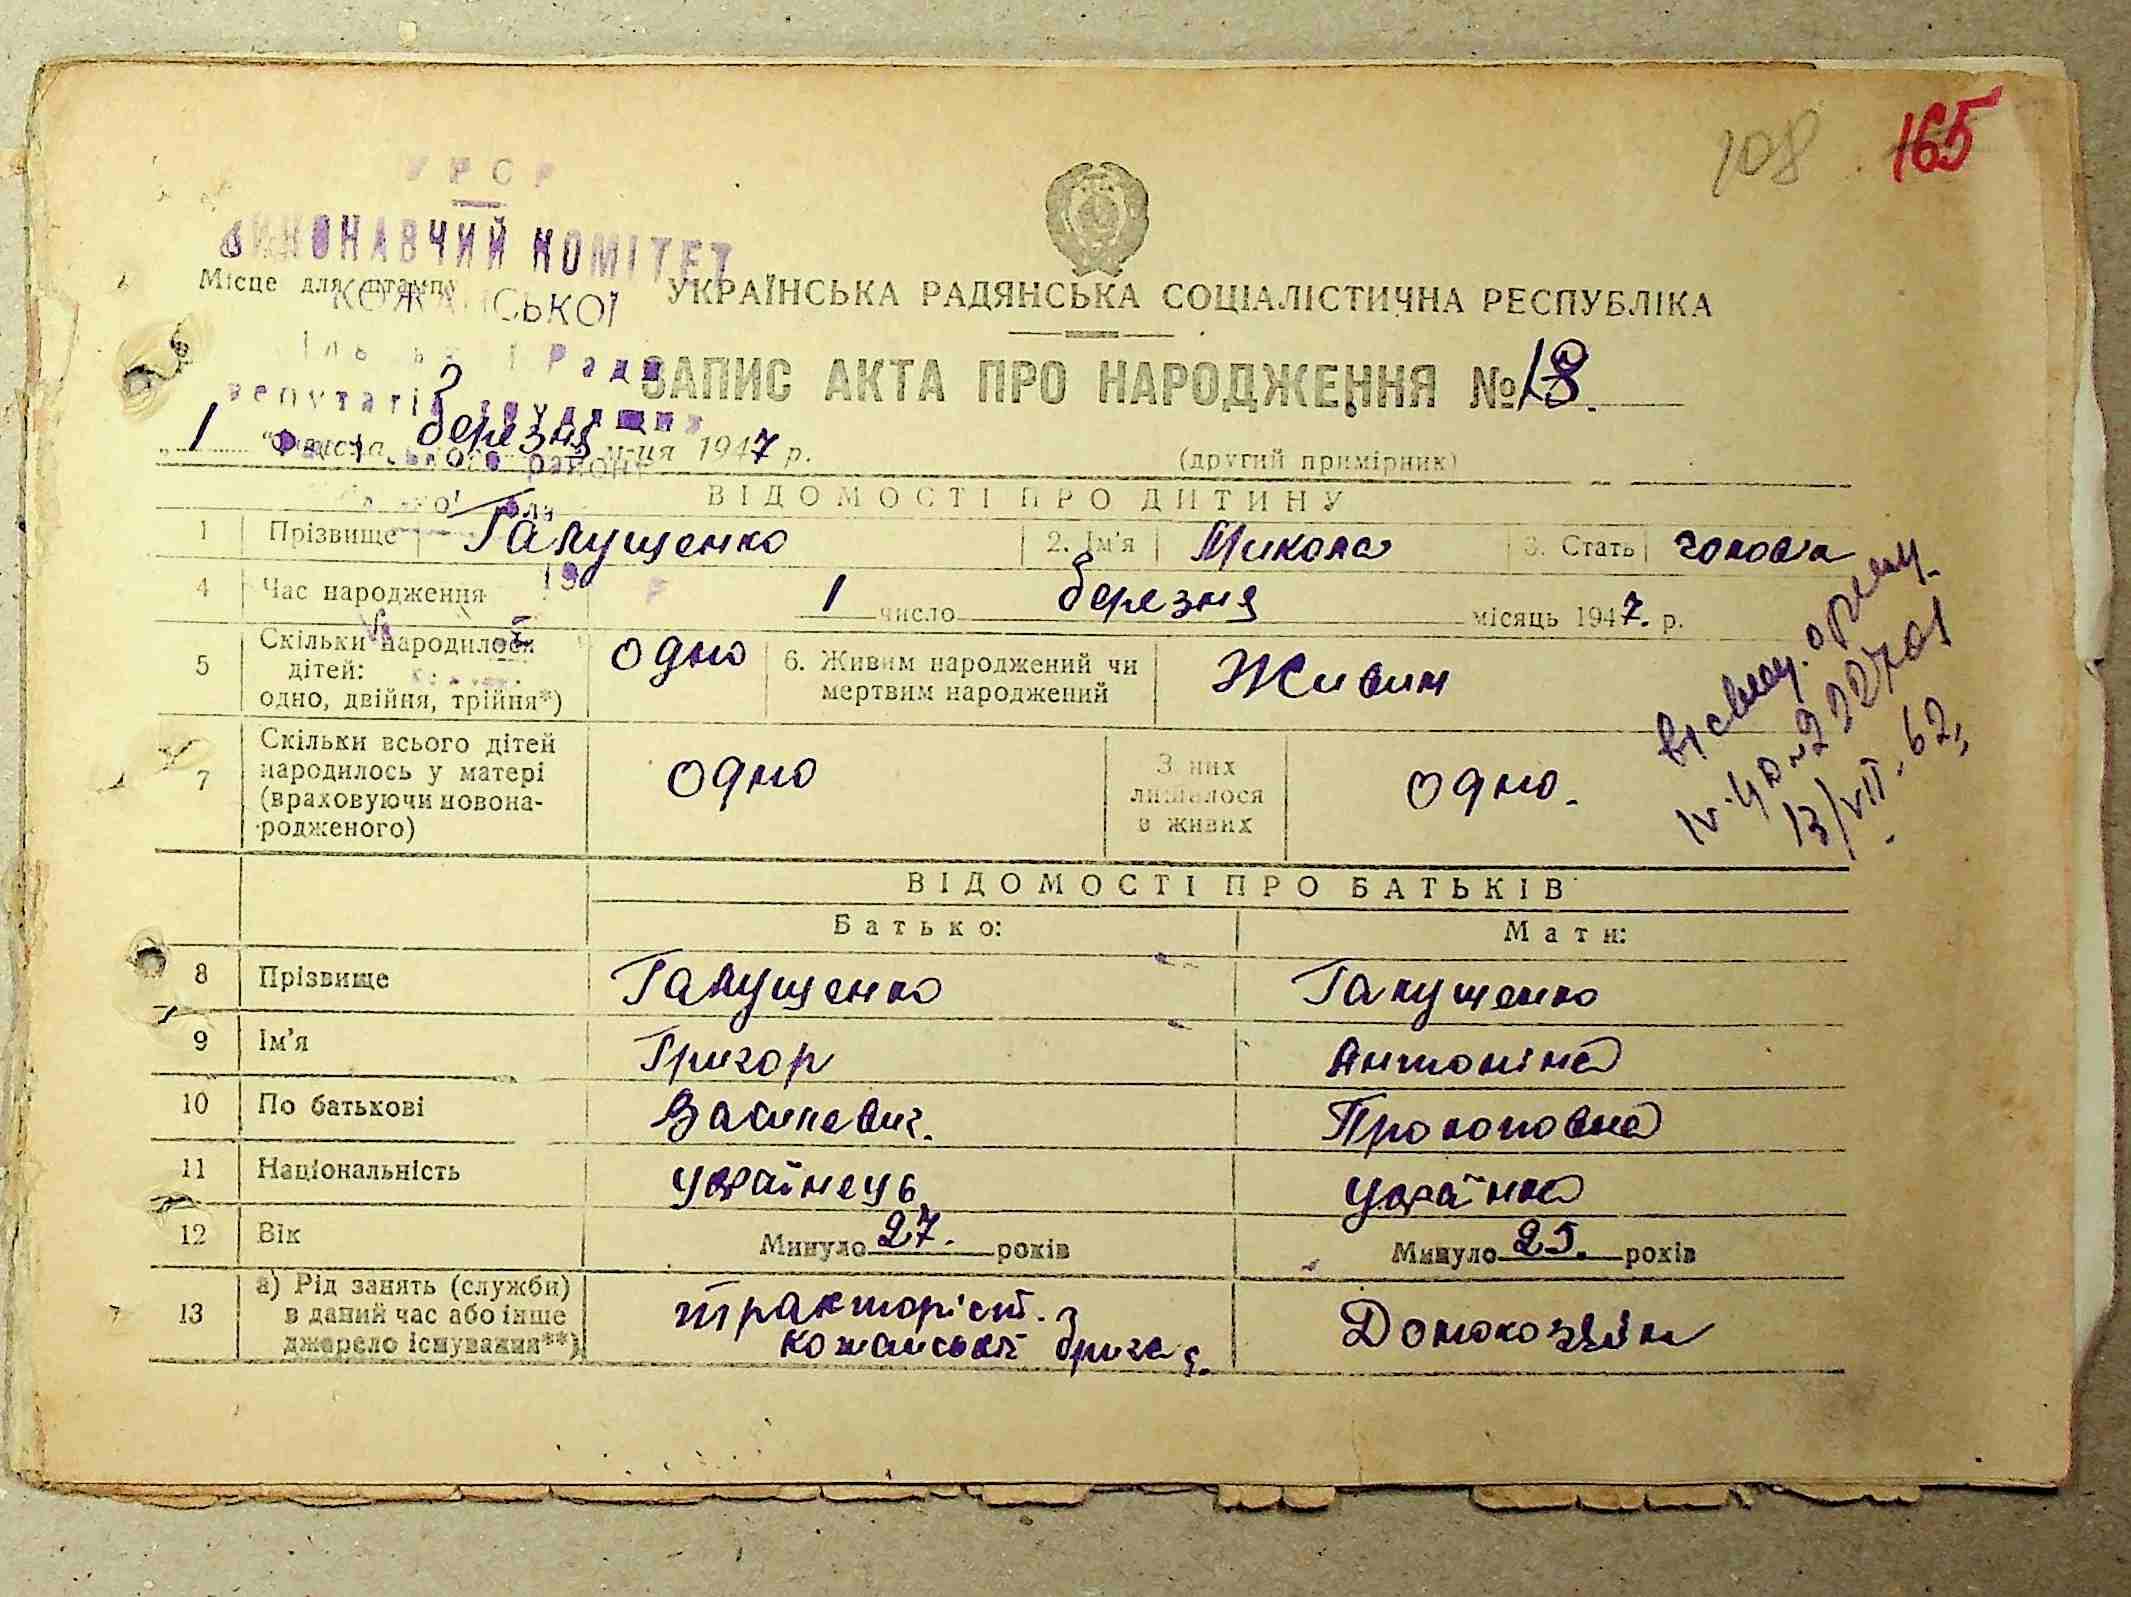 108 165
УРСР
ВИКОНАВЧИЙ КОМІТЕТ
Місце для штампу
КОЖАНСЬКОЇ
УКРАЇНСЬКА РАДЯНСЬКА СОЦІАЛІСТИЧНА РЕСПУБЛІКА
Ради
ЗАПИС АКТА ПРО НАРОДЖЕННЯ № 18.
депутатів трудящих
"1" числа березня м-ця 1947 р.
району
(другий примірник)
ВІДОМОСТІ ПРО ДИТИНУ
1 Прізвище Галущенко 2. Ім'я Микола 3. Стать чоловіч
4 Час народження 1 число березня місяць 1947. р.
5 Скільки народилося дітей: одно, двійня, трійня*) одно 6. Живим народжений чи мертвим народжений Живим
7 Скільки всього дітей народилось у матері (враховуючи новонародженого) одно З них лишилося в живих одно.
13/VII. 62
ВІДОМОСТІ ПРО БАТЬКІВ
Батько: Мати:
8 Прізвище Галущенко Галущенко
9 Ім'я Григор Антоніна
10 По батькові Василевич. Прокоповна
11 Національність українець українка
12 Вік Минуло 27. років Минуло 25. років
13 а) Рід занять (служби) в даний час або інше джерело існування**) тракторіст. Кожанської бригад. Домохозяйк